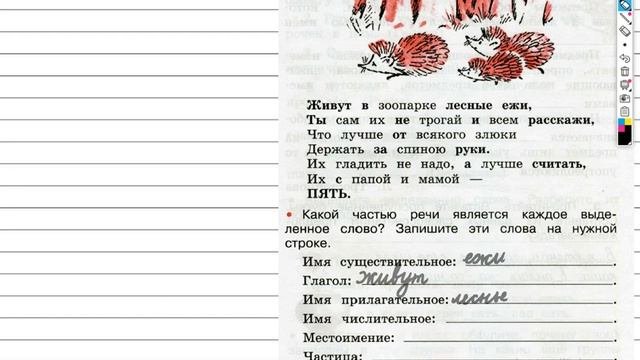 Живут в зоопарке лесные ежи,
Ты сам их не трогай и всем расскажи,
Что лучше от всякого злюки
Держать за спиною руки.
Их гладить не надо, а лучше считать,
Их с папой и мамой —
ПЯТЬ.
• Какой частью речи является каждое выде-
ленное слово? Запишите эти слова на нужной
строке.
Имя существительное: ежи
Глагол: живут
Имя прилагательное: лесные
Имя числительное:
Местоимение:
Частица: